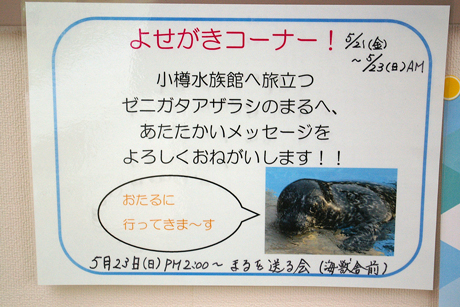 よせがきコーナー！
5/21(金)
～5/23(日)AM
小樽水族館へ旅立つ
ゼニガタアザラシのまるへ、
あたたかいメッセージを
よろしくおねがいします！！
おたるに
行ってきま～す
5月23日(日)PM2:00～ まるを送る会 (海獣舎前)